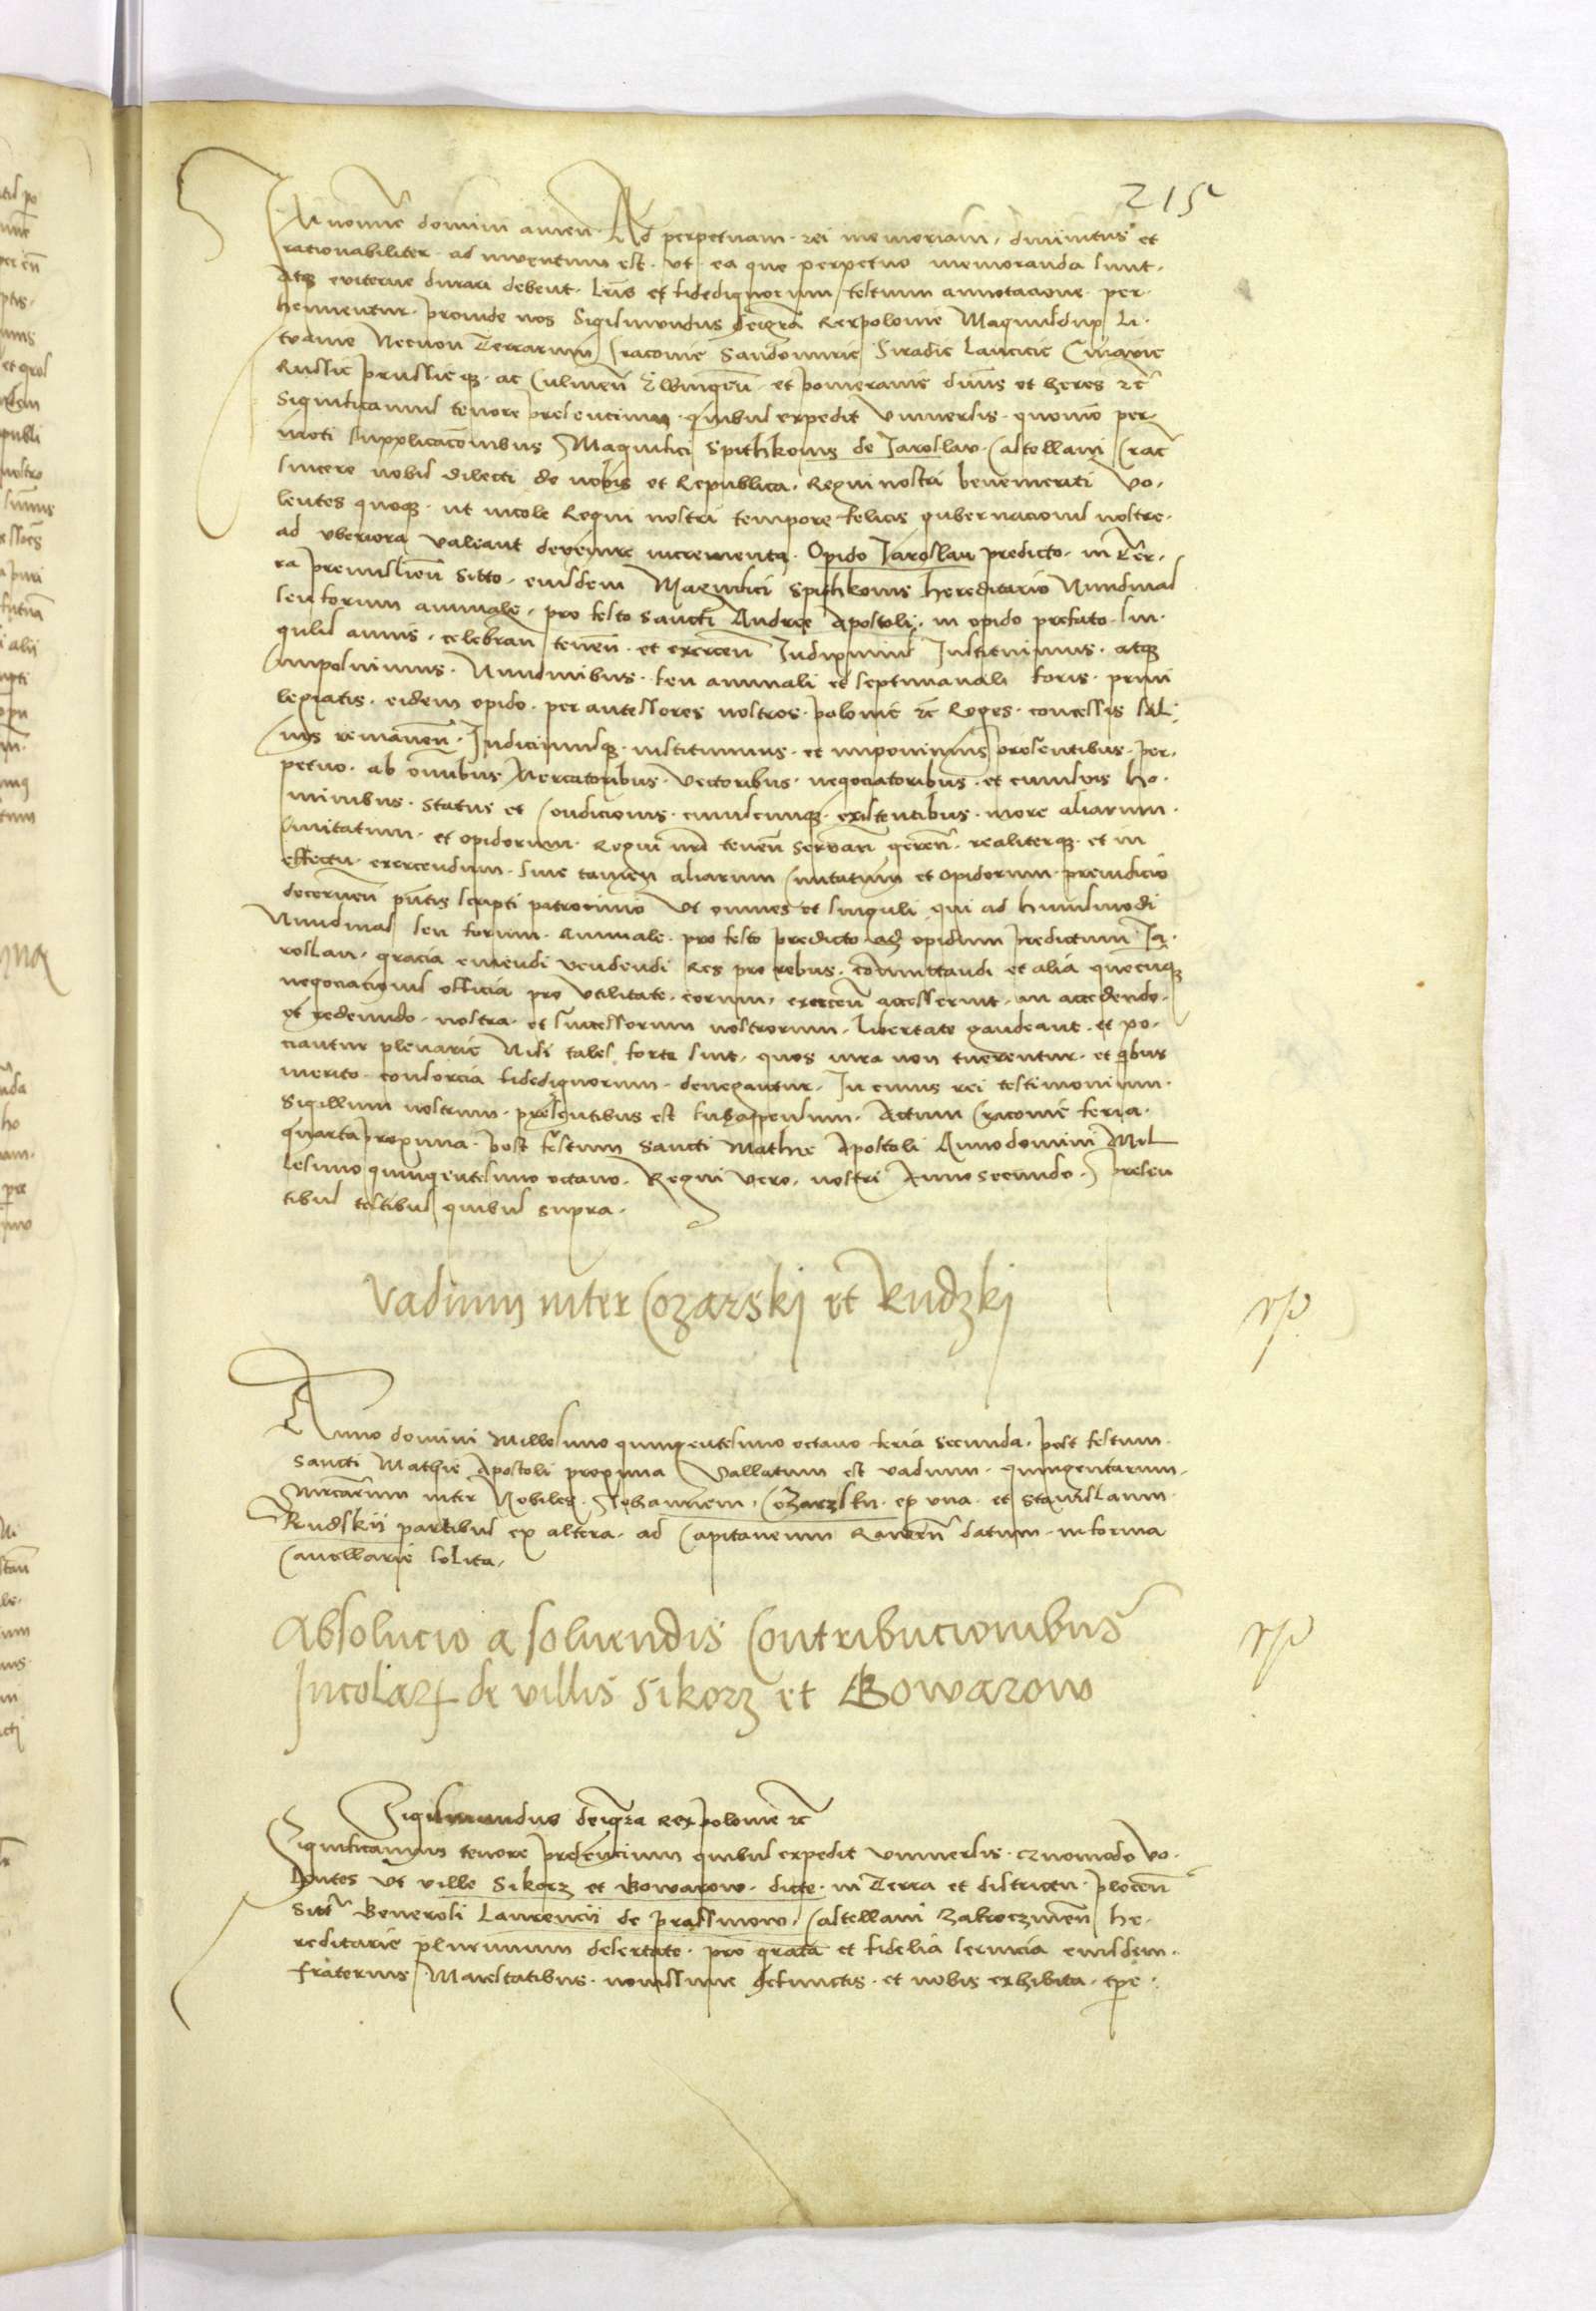 215
In nomine domini amen. Ad perpetuam rei memoriam, divinitus et
rationabiliter ad inventum est. ut ea que perpetuo memoranda sunt.
Atqz eviterne durari debent. Lris et fidedignorum testium annotacione per-
hennentur. proinde nos Sigismundus deigra Rex polonie Magnusdux Li-
tvanie Necnon Terrarum Cracovie Sandomirie Siradie Lancicie Cuiavie
Russie prussieqz. ac Culmen Elbingen. et pomeranie dnus et heres etc
Significamus tenore presencium. quibus expedit universis. quomodo per-
moti supplicacionibus Magnifici Spithkonis de Jaroslav. Castellani Crac
sincere nobis dilecti de nobis et Republica. Regni nostri benemeriti vo-
lentes quoqz. ut incole Regni nostri tempore felicis gubernacionis nostre.
ad uberiora valeant devenire incrementa. Opido Jaroslau predicto. in Ter-
ra premislien sitto. eiusdem Magnifici Spithkonis hereditario Nundinas
seu forum annuale. pro festo sancti Andree Apostoli. in opido prefato sin-
gulis annis. celebran tenen. et exercen Indiximus Instituimus. atqz
imposuimus. Nundinibus. seu annuali et septimanali foris. privi
legiatis. eidem opido. per antessores nostros. polonie etc Reges. concessis sal-
vis remanen. Indicimusqz. instituimus. et imponimus presentibus. per-
petuo. ab omnibus Mercatoribus. Vectoribus. negociatoribus. et cuiusvis ho-
minibus. status et condicionis. cuiuscunqz. existentibus. more aliarum.
Civitatum. et opidorum. Regni nri tenen servan geren. realiterqz. et in
effectu. exercendum. sine tamen aliarum Civitatum et opidorum. preiudicio
decernen pntis scripti patrocinio Ut omnes et singuli qui ad huiusmodi
Nundinas seu forum. annuale. pro festo predicto ad opidum predictum Ja-
roslau. gracia emendi vendendi Res pro rebus. commuttandi et alia quecunqz
negociacionis officia pro utilitate. eorum. exercen accesserint. in accedendo.
et redeundo. nostra. et successorum nostrorum. libertate gaudeant. et po-
ciantur plenarie Nisi tales forte sint. quos iura non tuerentur. et qbus
merito. consorcia fidedignorum. denegantur. In cuius rei testimonium.
Sigillum nostrum. presentibus est subappensum. Actum Cracovie feria.
quarta proxima. post festum sancti Mathie Apostoli Anno domini Mil
lesimo quingentesimo octavo. Regni vero. nostri Anno secundo. presen
tibus testibus quibus supra.
Vadium inter Cozarski et Rudzki
rp
Anno domini Millesimo quingentesimo octavo feria secunda. post festum.
sancti Mathie Apostoli proxima Vallatum est vadium. quingentarum.
Mrcarum inter Nobiles. Johannem. Cozarski. ex una. et Stanislaum.
Rudskij partibus ex altera. ad Capitaneum Raven datum. in forma
Cancellarie solita.
Absolucio a solvendis Contribucionibus
Incolarum de villis Sikorz et Bowarow
rp
Sigismundus deigra Rex polonie etc
Significamus tenore presencium quibus expedit universis. quomodo vo-
lentes Ut ville Sikorz et Bowarow. dicte. in Terra et districtu. plocen
Sitt Generosi Laurencii de prassmow. Castellani Zakroczimen he-
reditarie plurimum desertate. pro grata et fidelia servicia eiusdem.
fraternis Maiestatibus. novissime defunctis. et nobis exhibita.